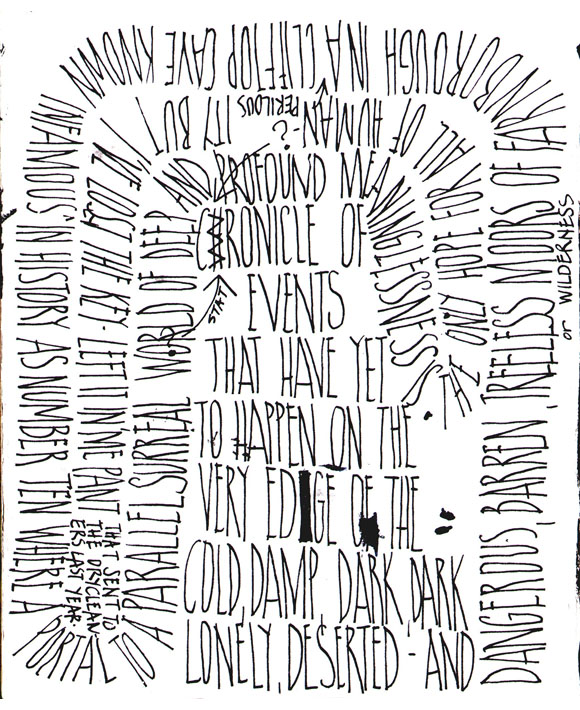 START
CHRONICLE OF
EVENTS
THAT HAVE YET
TO HAPPEN ON THE
VERY EDGE OF THE
COLD, DAMP, DARK, DARK
LONELY, DESERTED - AND
DANGEROUS, BARREN, TREELESS MOORS OF FARNBOROUGH IN A CLIFTOP CAVE KNOWN
or WILDERNESS
INFAMOUS'IN HISTORY AS NUMBER TEN WHERE A
PORTAL TO
A PARALLEL SURREAL WORLD OF DEEP AND PROFOUND MEANINGLESSNESS
IS THE ONLY HOPE FOR ALL OF HUMAN-?ITY BUT
PERILOUS
I'VE LOST THE KEY - LEFT IT IN ME PANT
THAT SENT TO
THE DRYCLEAN
ERS LAST YEAR